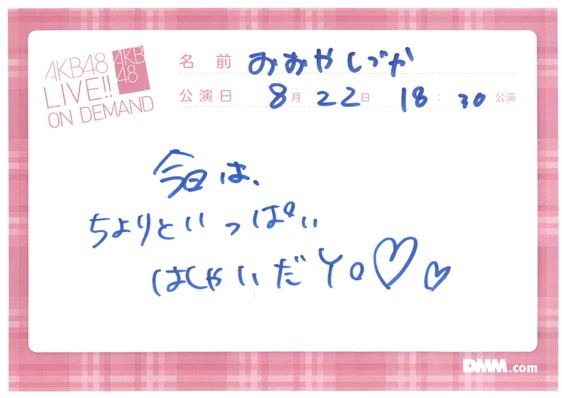 AKB48
LIVE!!
ON DEMAND
AKB
48
名 前 おおやしづか
公演日 8月 22日 18:30 公演
今日は、
ちよりといっぱい
はしゃいだYo♡♡
DMM.com